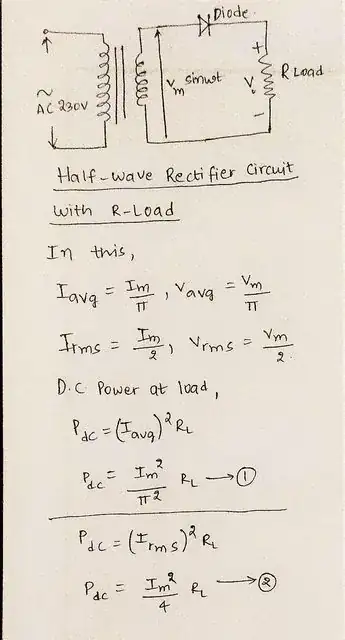 Diode
AC 230V
~
Vm sinωt
+
V₀
-
R Load
Half-wave Rectifier Circuit
with R-Load
In this,
Iavg = Im/π , Vavg = Vm/π
Irms = Im/2, Vrms = Vm/2.
D.C Power at load,
Pdc = (Iavg)² RL
Pdc = Im²/π² RL → ①
Pdc = (Irms)² RL
Pdc = Im²/4 RL → ②